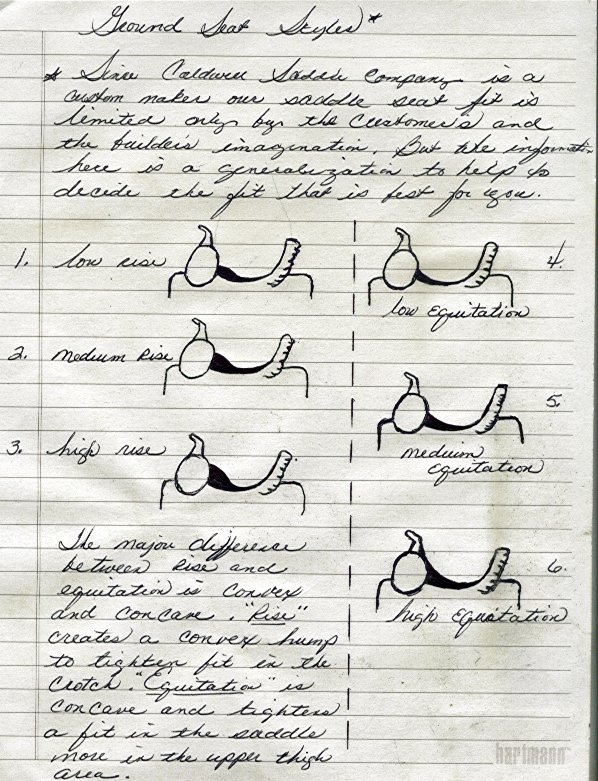 Ground Seat Styles*
* Since Caldwell Saddle Company is a
custom maker our saddle seat fit is
limited only by the customer's and
the builder's imagination. But the information
here is a generalization to help to
decide the fit that is best for you.
1. low rise
2. medium Rise
3. high rise
4.
low Equitation
5.
medium
Equitation
6.
high Equitation
The major difference
between rise and
equitation is convex
and concave. "Rise"
creates a convex hump
to tighten fit in the
crotch. "Equitation" is
concave and tightens
a fit in the saddle
more in the upper thigh
area.
hartmann